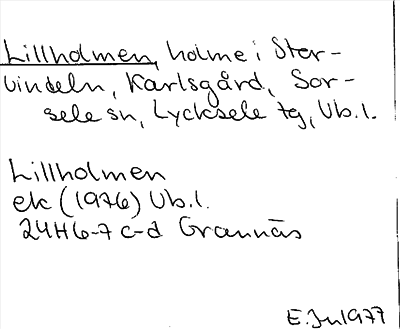 Lillholmen, holme i Stor-
vindeln, Karlsgård, Sor-
sele sn, Lycksele tg, Vb.l.
Lillholmen
ek (1976) Vb.l.
24H6-7 c-d Grannäs
E.Jn1977